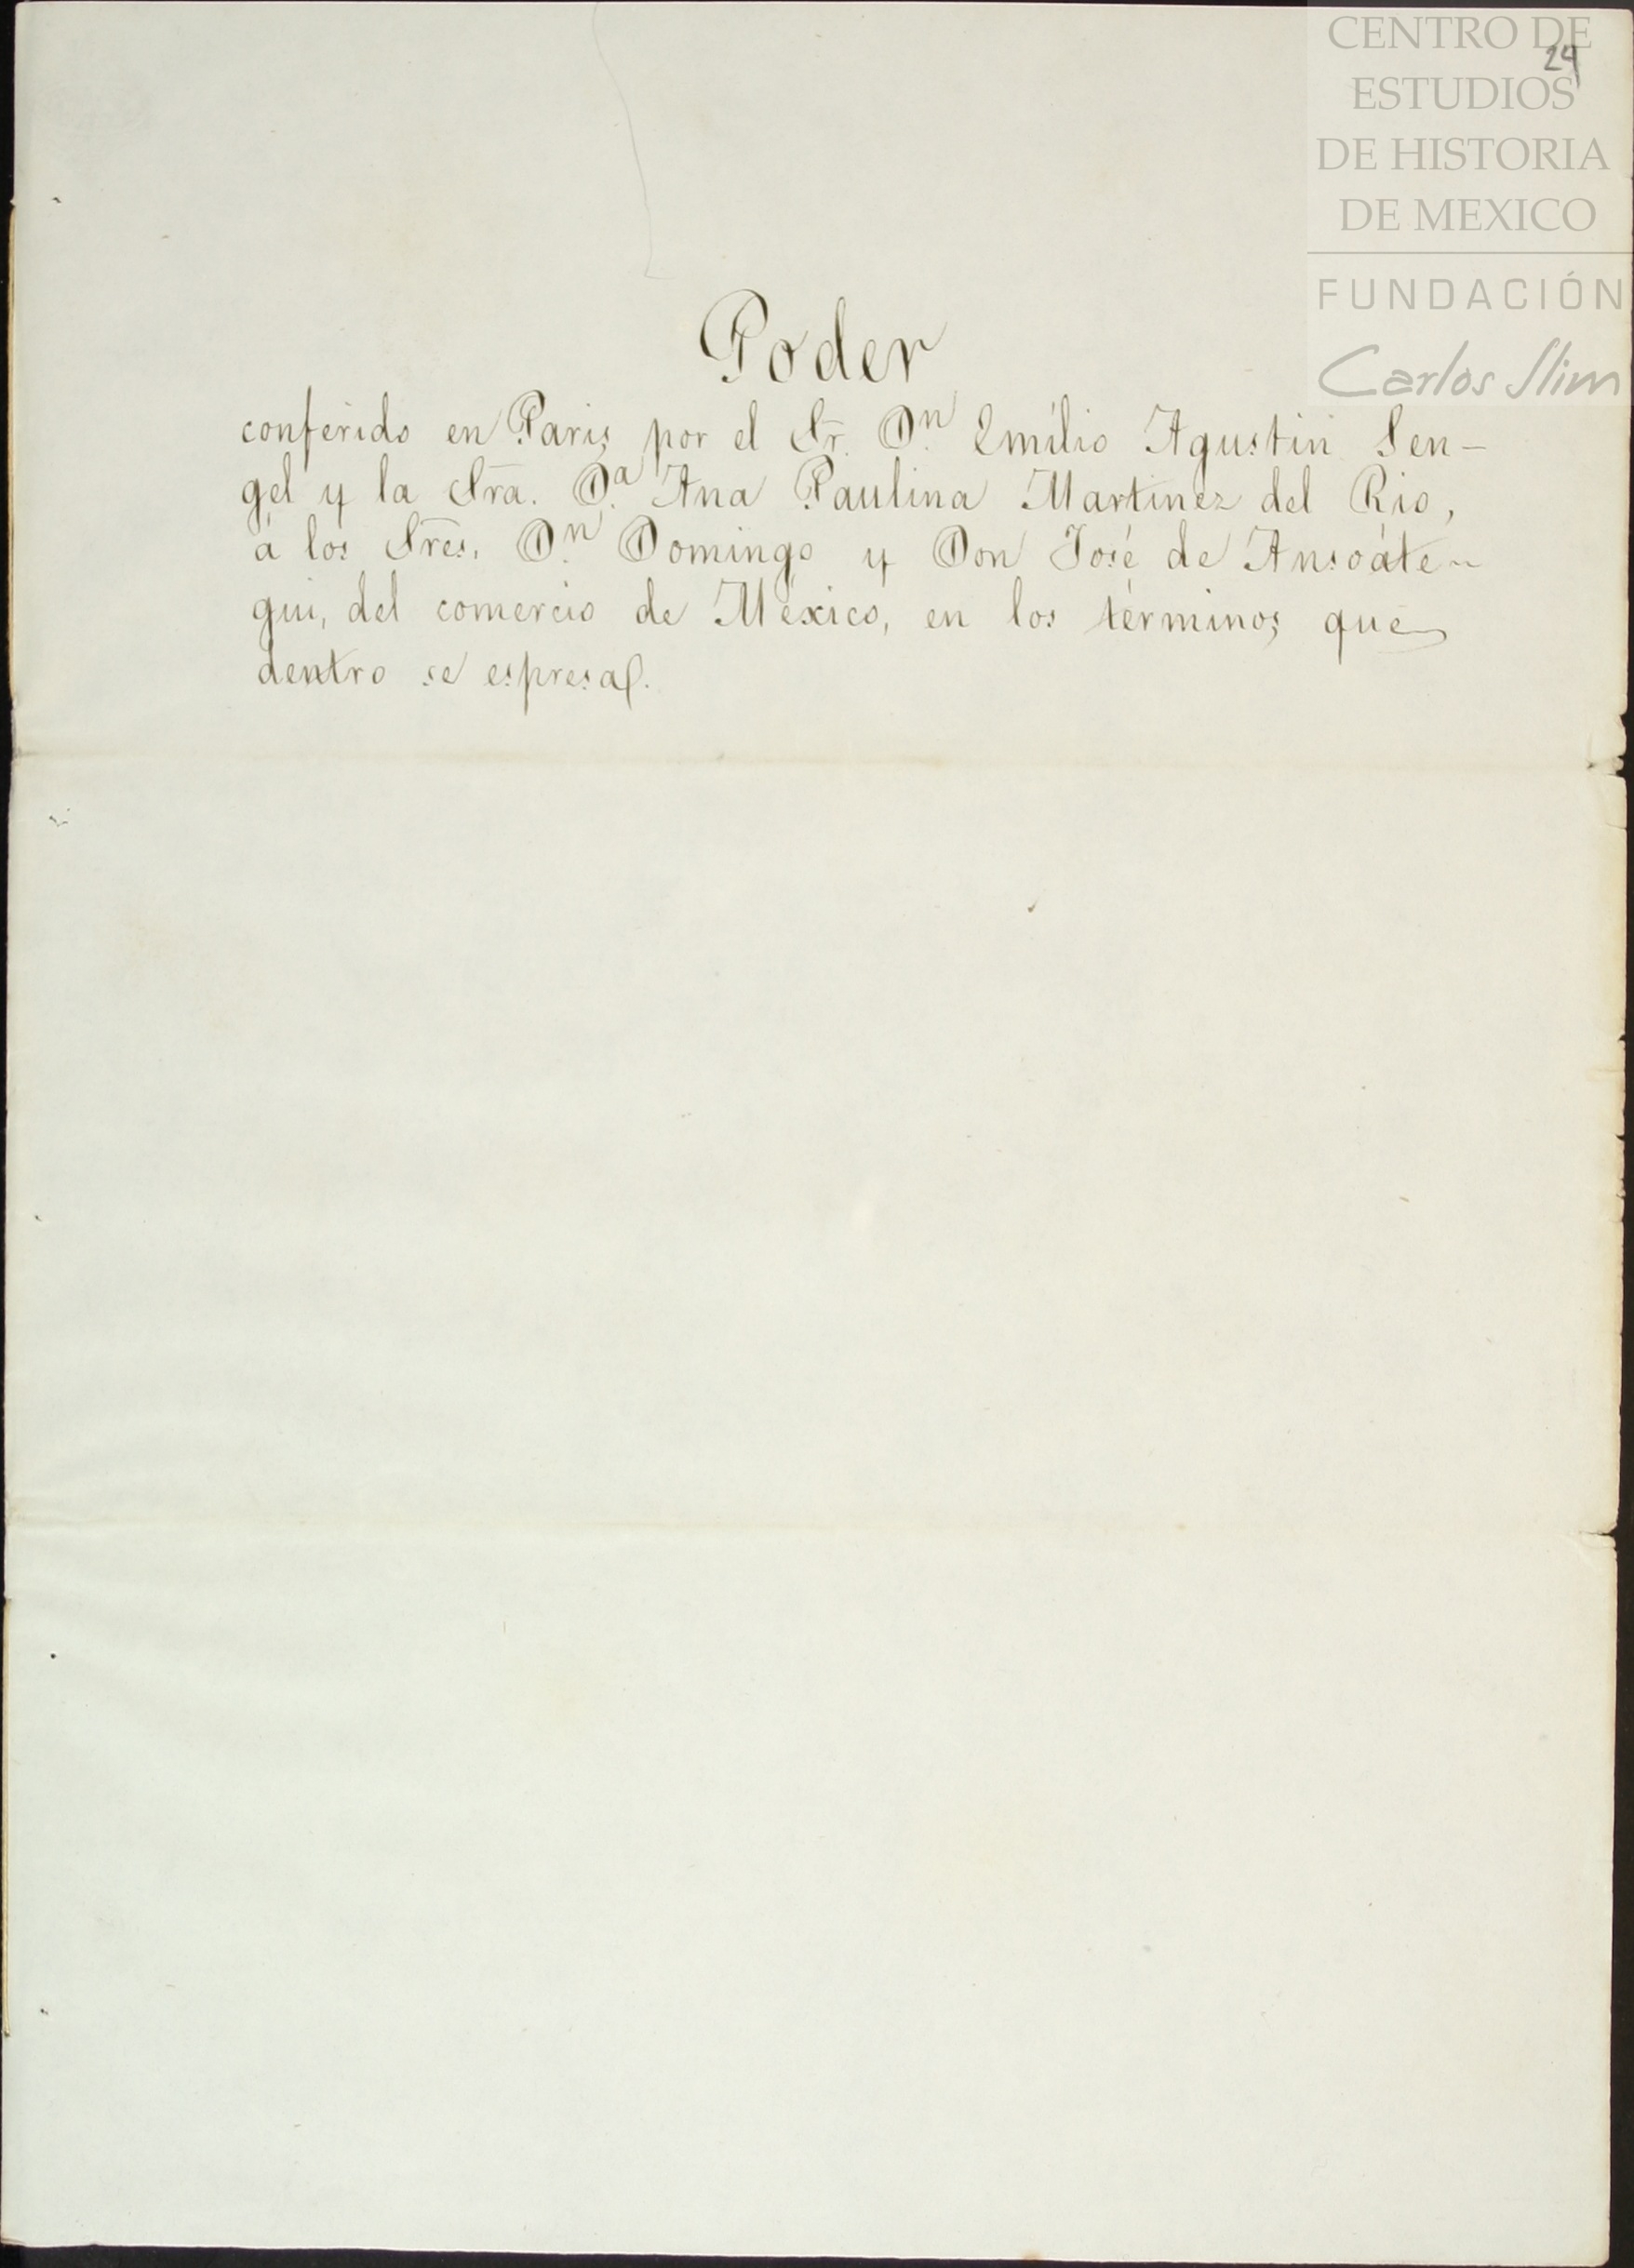 24
CENTRO DE
ESTUDIOS
DE HISTORIA
DE MEXICO
FUNDACIÓN
Carlos Slim
Poder
conferido en Paris por el Sr. Dn. Emilio Agustin Sen-
gel y la Sra. Da. Ana Paulina Martinez del Rio,
á los Sres. Dn. Domingo y Don José de Ansoáte-
gui, del comercio de México, en los términos que
dentro se espresa.